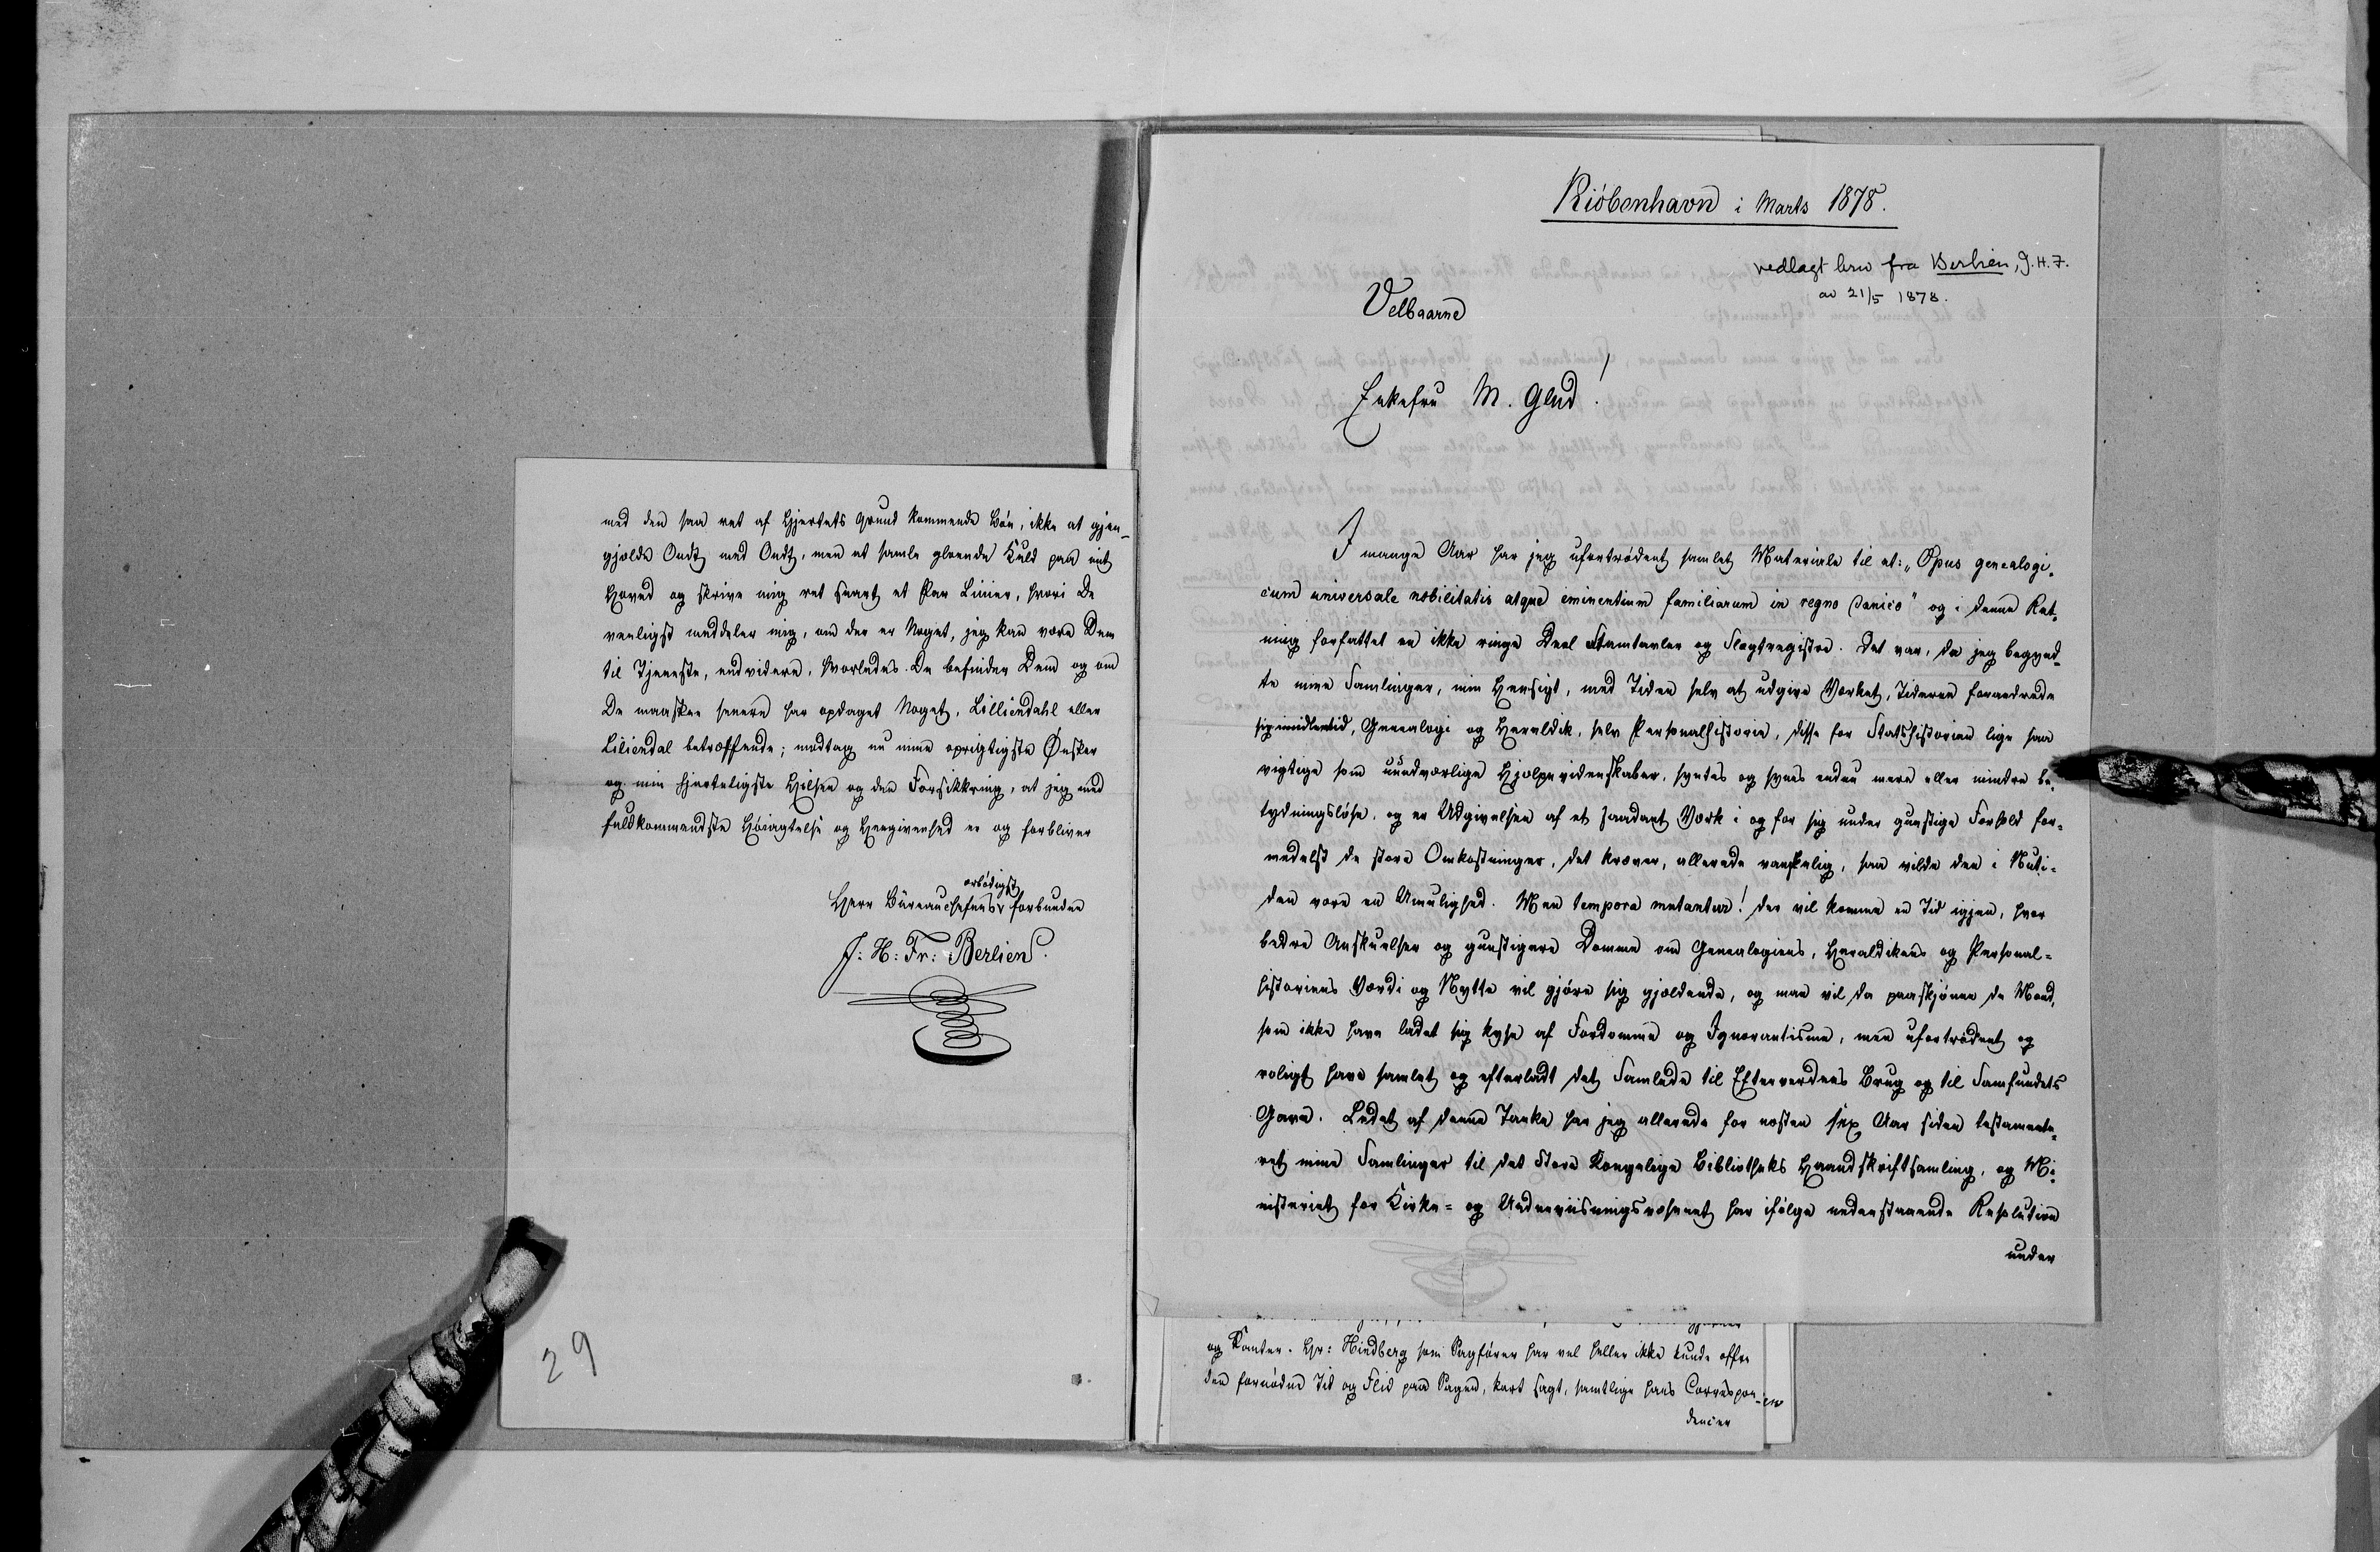 med den saa ret af Hjertets Grund kommende Bön, ikke at gjen-
gjælde Ondt med Ondt, men at samle gloende Kuld paa mit
Hoved og skrive mig ret snart et Par Linier, hvori De
venligst meddeler mig, om der er Noget, jeg kan være Dem
til Tjeneste, endvidere, hvorledes De befinder Dem og om
De maaskee senere har opdaget Noget, Lilliendahl eller
Liliendal betræffende; modtag nu mine oprigtigste Ønsker
og min hjerteligste Hilsen og den Forsikkring, at jeg med
fuldkommendste Höiagtelse og Hengivenhed er og forbliver
ærbödigst
Herr Büreauchefens v forbundne
J: H: Fr: Berlien.
29
Kiöbenhavn i Marts 1878.
vedlagt brev fra Berlien, J.H.F.
av 21/5 1878.
Velbaarne
Enkefru M. Glud!
I mange Aar har jeg ufortrödent samlet Materiale til et: „Opus genealogi-
cum universale nobilitatis atque eminentium familiarum in regno danico" og i denne Ret-
ning forfattet en ikke ringe Deel Stamtavler og Slægtregistre. Det var, da jeg begynd-
te mine Samlinger, min Hensigt, med Tiden selv at udgive Værket, Tiderne forandrede
sig imidlertid, Genealogi og Heraldik, selv Personalhistorie, disse for Statshistorien lige saa
vigtige som uundværlige Hjælpevidenskaber, syntes og synes endnu mere eller mindre be-
tydningslöse, og er Udgivelsen af et saadant Værk i og for sig under gunstige Forhold for-
medelst de store Omkostninger, det kræver, allerede vanskelig, saa vilde den i Nuti-
den være en Umulighed. Men tempora mutantur! der vil komme en Tid igjen, hvor
bedre Anskuelser og gunstigere Domme om Genealogiens, Heraldikens og Personal-
historiens Værdi og Nytte vil gjöre sig gjældende, og man vil da paaskjönne de Mænd,
som ikke have ladet sig kyse af Fordomme og Ignorantisme, men ufortrödent og
roligt have samlet og efterladt det Samlede til Efterverdens Brug og til Samfundets
Gavn. Ledet af denne Tanke har jeg allerede for næsten sex Aar siden testamente-
ret mine Samlinger til det Store Kongelige Bibliotheks Haandskriftsamling, og Mi-
nisteriet for Kirke- og Underviisningsvæsenet har ifölge nedenstaaende Resolution
under
og Kanter. Hr: Hindberg som Sagförer har vel heller ikke kunde offre
den fornödne Tid og Flid paa Sagen, kort sagt, samtlige hans Correspon-
dencer